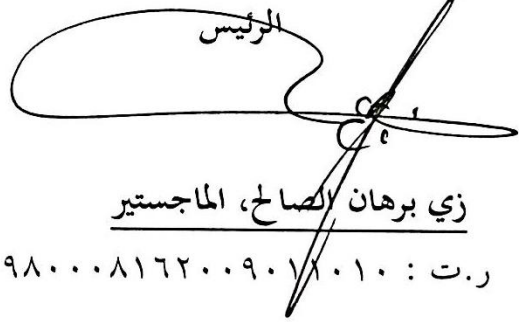 الرئيس
زي برهان الصالح، الماجستير
ر.ت : ٩٨٠٠٠٨١٦٢٠٠٩٠١١٠١٠